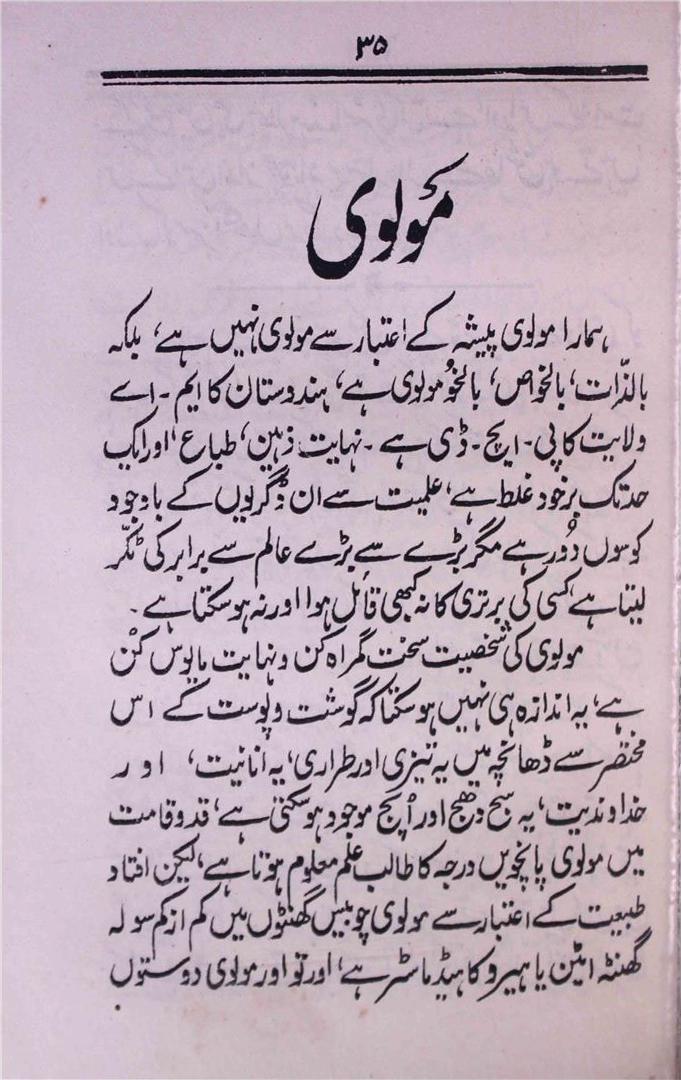 ۳۵
مولوی
ہمارا مولوی پیشہ کے اعتبار سے مولوی نہیں ہے، بلکہ
بالذّات، بالخواص، بالخُو مولوی ہے، ہندوستان کا ایم۔ اے
ولایت کا پی۔ ایچ۔ ڈی ہے۔ نہایت ذہین، طباع، اور ایک
حد تک برخود غلط ہے، علمیت سے ان ڈگریوں کے باوجود
کوسوں دُور ہے مگر بڑے سے بڑے عالم سے برابر کی ٹکّر
لیتا ہے، کسی کی برتری کا نہ کبھی قائل ہوا اور نہ ہو سکتا ہے۔
مولوی کی شخصیت سخت گمراہ کن و نہایت مایوس کُن
ہے، یہ اندازہ ہی نہیں ہو سکتا کہ گوشت و پوست کے اس
مختصر سے ڈھانچہ میں یہ تیزی اور طراری، یہ انانیت، اور
خداوندیت، یہ سج دھج اور اُپج موجود ہو سکتی ہے، قد و قامت
میں مولوی پانچویں درجہ کا طالب علم معلوم ہوتا ہے، لیکن افتاد
طبیعت کے اعتبار سے مولوی چوبیس گھنٹوں میں کم از کم سولہ
گھنٹہ ایٹن یا ہیرو کا ہیڈ ماسٹر ہے، اور تو اور مولوی دوستوں